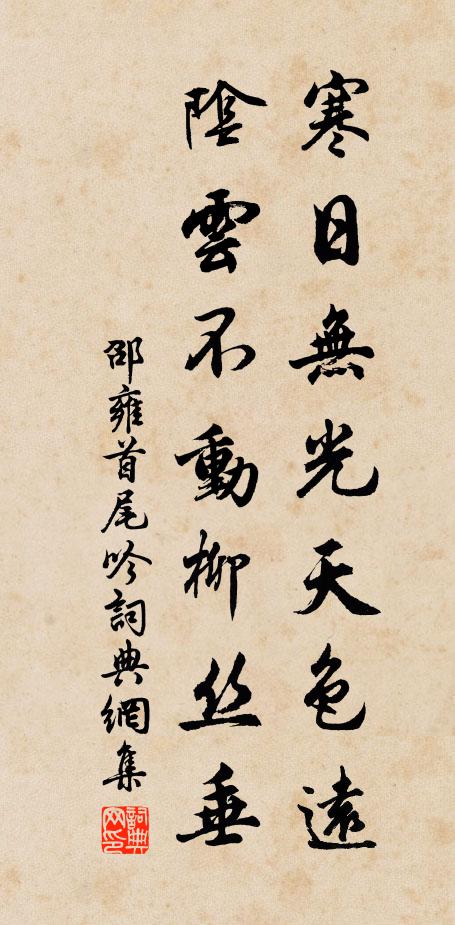 寒日無光天色遠
陰雲不動柳丝垂
邵雍首尾吟詞典網集
詞典网印